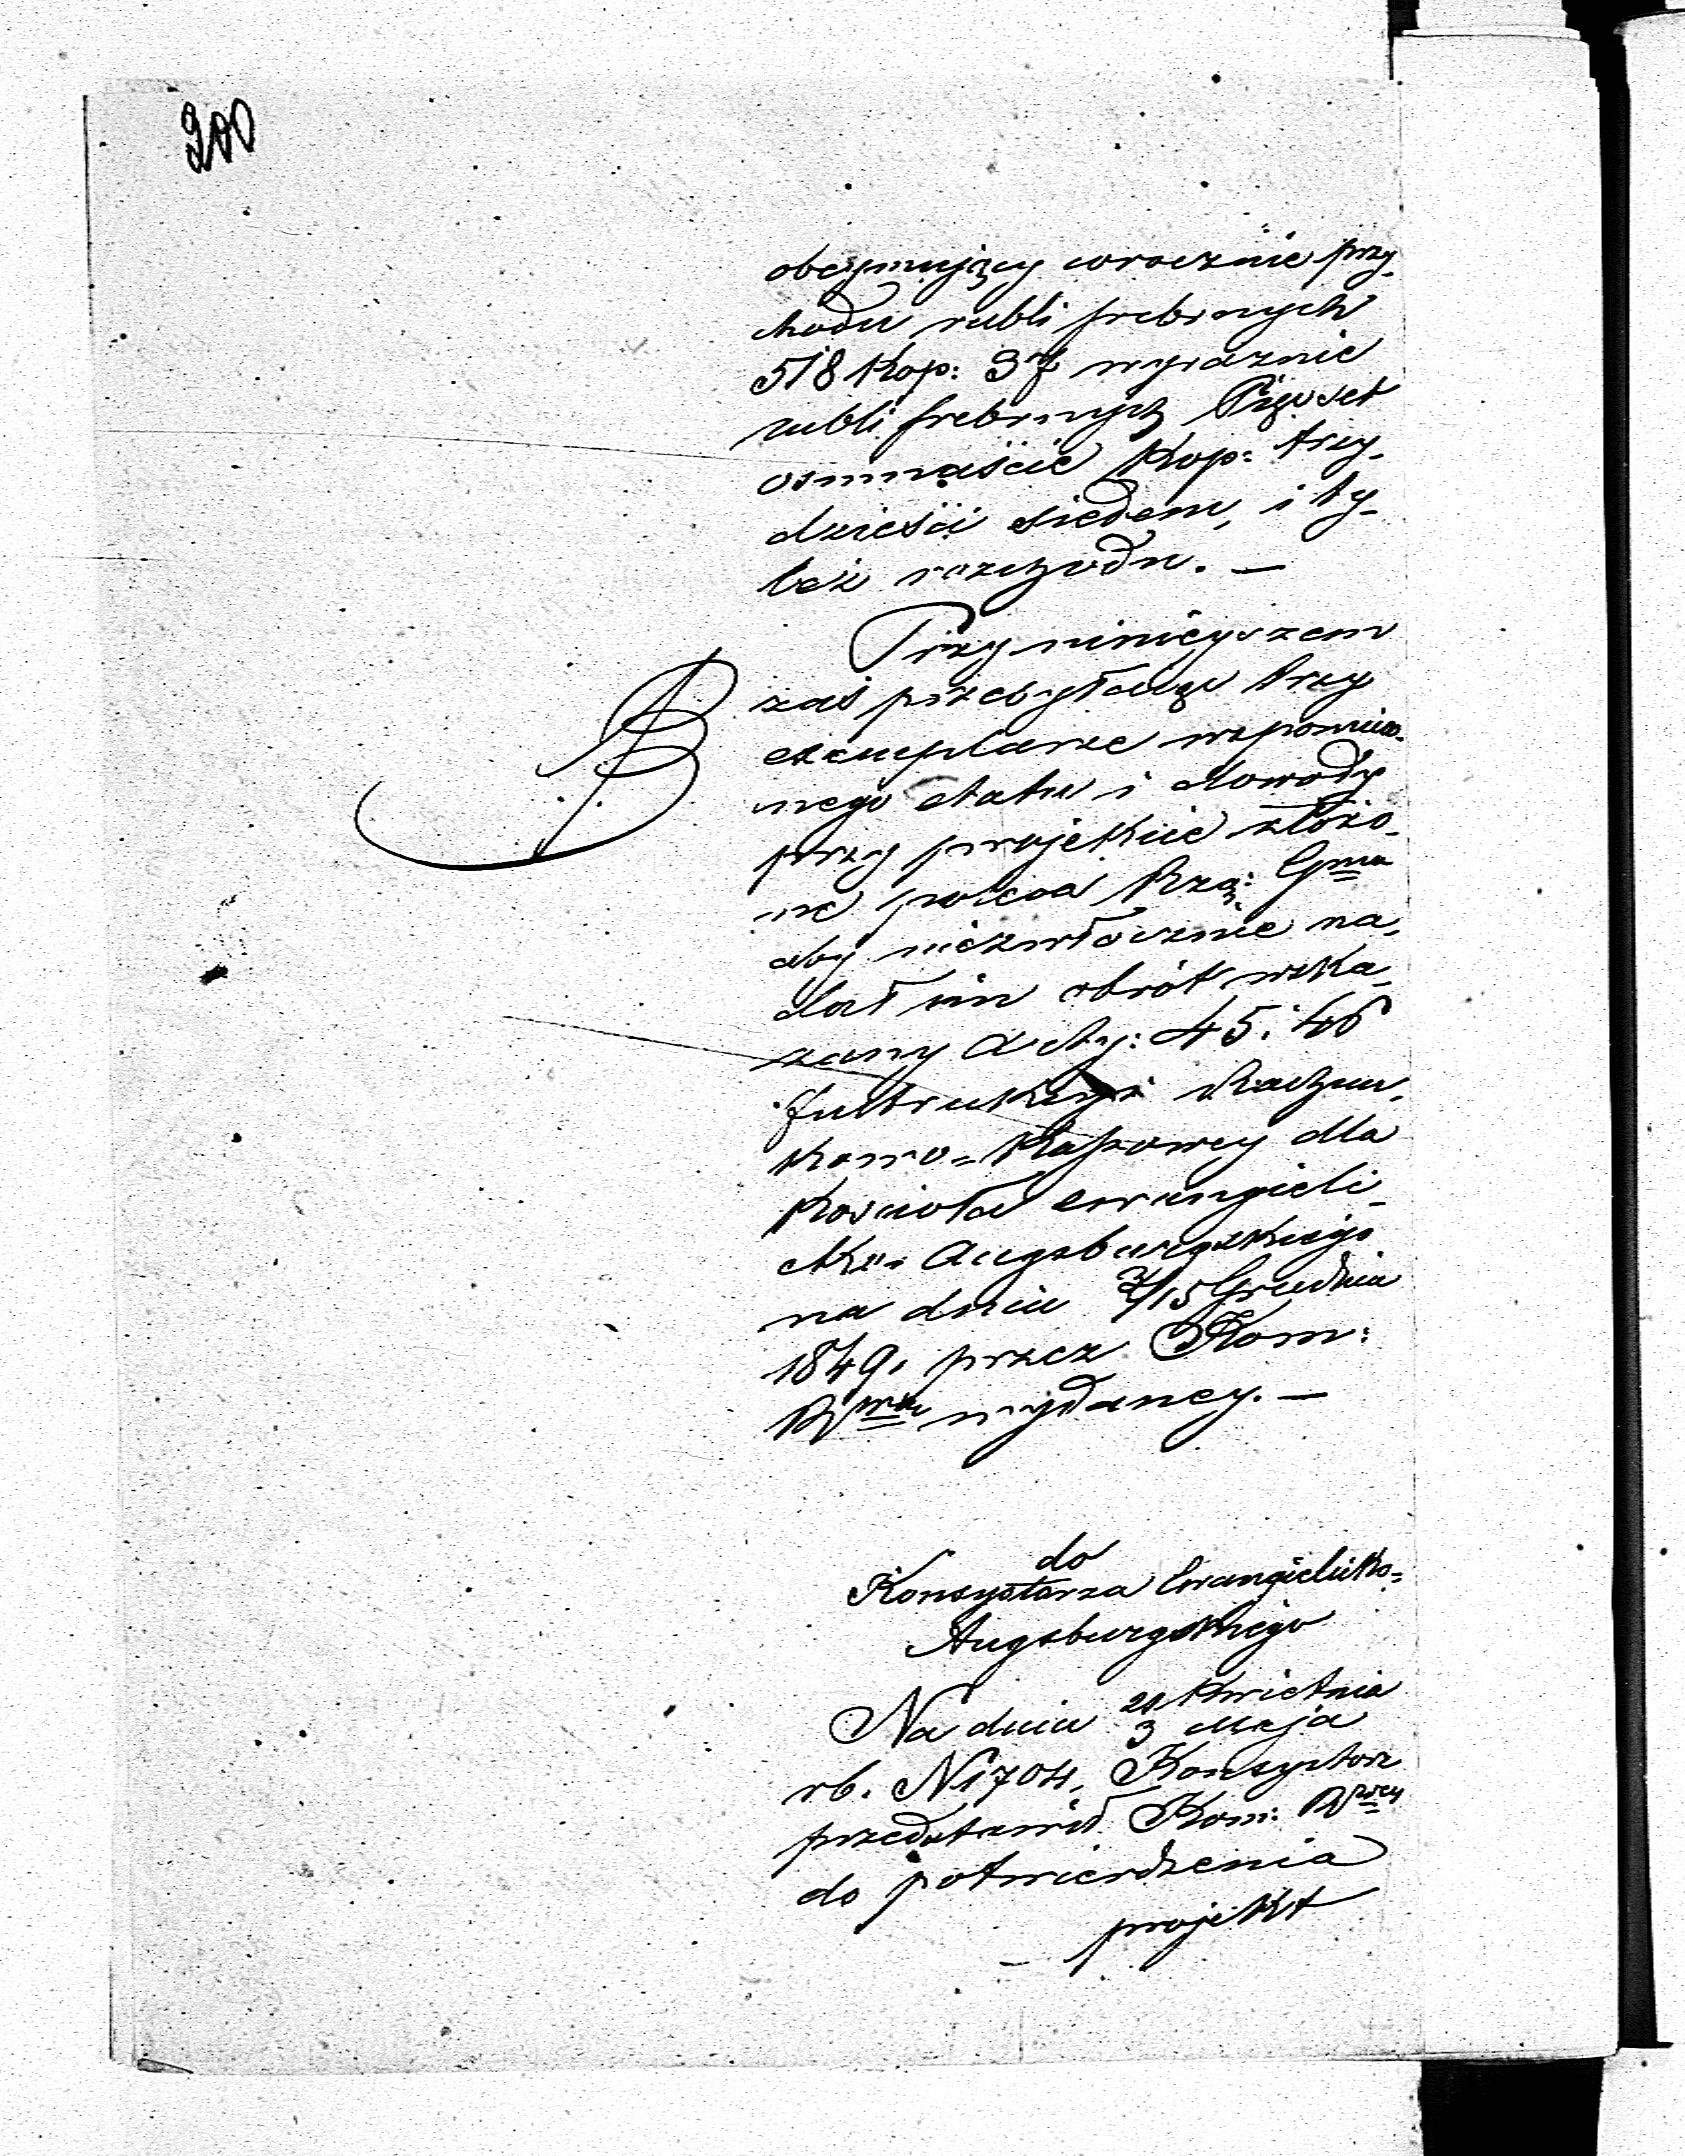 200
obeymujący corocznie przy-
chodu rubli srebrnych
518 Kop: 37 wyraznie
rubli srebrnych Pięset
osmnaście Kop: trzy-
dzieści siedem, i ty-
leż rozchodu. —
Przy niniejszem
zaś przesyłając trzy
exemplarze wspomnio-
nego etatu i dowody
przy projekcie złożo-
ne poleca Rzą: Gmu
aby niezwłocznie na-
dał im obrót wska-
zany Arty: 45 i 46
Instrukcyi Rachun-
kowo-Kassowey dla
Kościoła ewangieli-
cko-Augsburgskiego
na dniu 3/15 Grudnia
1849, przez Kom:
Rwą wydaney. —
do
Konsystorza Ewangielicko-
Augsburgskiego
Na dniu 21 Kwietnia
3 Maja
rb. N 1704, Konsystorz
przedstawił Kom: Rwey
do potwierdzenia
projekt